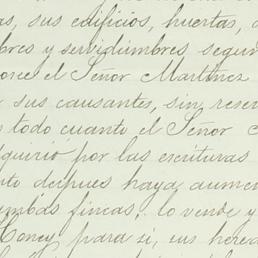 as, sus edificios, huertas,
bres y servidumbres segun
orce el Señor Martinez
sus causantes, sin reser
todo cuanto el Señor
dquirió por las escrituras
nto dcipues haya aumen
ambas fincas; lo vende y
Coney, para sí, sus hered